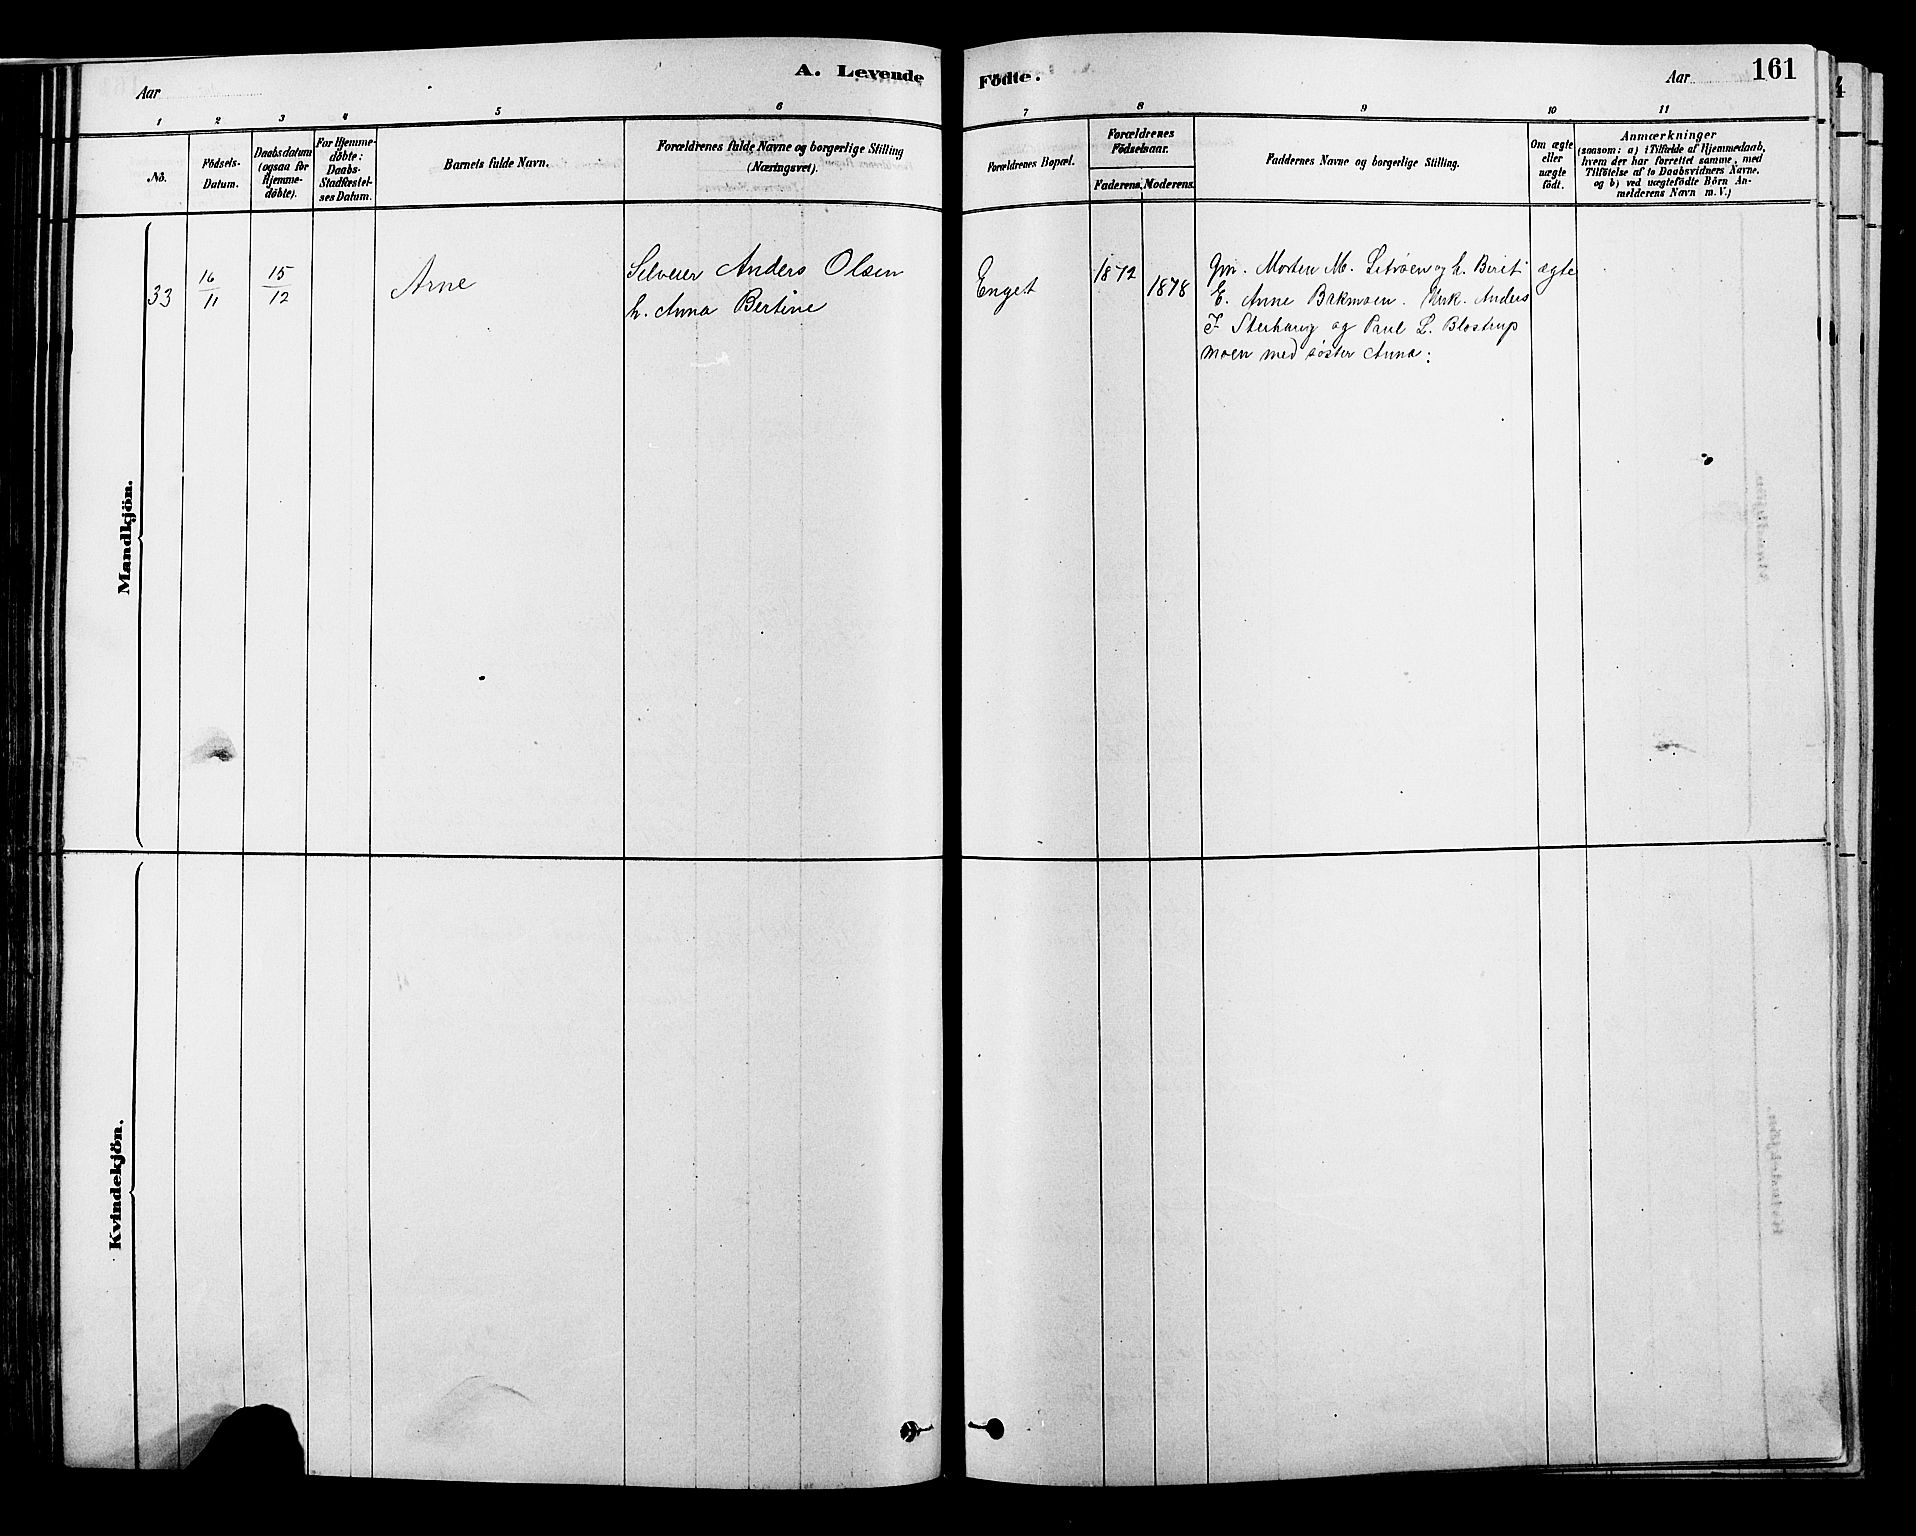 A. Levende Födte.
Aar
Aar
161
1 2 3 4 5 6 7 8 9 10 11
No.
Födsels-
Datum.
Daabsdatum
(ogsaa for
Hjemme-
døbte).
For Hjemme-
døbte:
Daabs-
Stadfæstel-
ses Datum.
Barnets fulde Navn.
Forældrenes fulde Navne og borgerlige Stilling
(Næringsvei).
Forældrenes Bopæl.
Forældrenes
Födselsaar.
Faderens. Moderens.
Faddernes Navne og borgerlige Stilling.
Om ægte
eller
uægte
født.
Anmærkninger
(saasom: a) i Tilfælde af Hjemmedaab,
hvem der har forrettet samme, med
Tilföielse af to Daabsvidners Navne,
og b) ved uægtefödte Börn An-
melderens Navn m. V.)
Mandkjön.
33
16/11
15/12
Arne
Selveier Anders Olsen
h. Anna Bertine
Enget
1872
1878
Gm. Morten M. Litröen og h. Berit
E. Anne Bakmoen. Ung. Anders
J Sterhaug og Paul L. Blostrup
moen med søster Anna:
ægte
Kvindekjön.